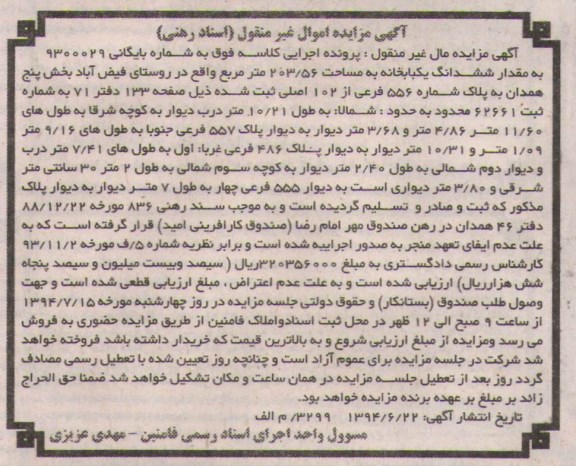 آگهی مزایده اموال غیر منقول (اسناد رهنی)
آگهی مزایده مال غیر منقول : پرونده اجرایی کلاسه فوق به شماره بایگانی ۹۳۰۰۰۲۹
به مقدار ششدانگ یکبابخانه به مساحت ۲۰۳/۵۶ متر مربع واقع در روستای فیض آباد بخش پنج
همدان به پلاک شماره ۵۵۶ فرعی از ۱۰۲ اصلی ثبت شده ذیل صفحه ۱۳۳ دفتر ۷۱ به شماره
ثبت ۶۲۶۶۱ محدود به حدود : شمالا: به طول ۱۰/۲۱ متر درب دیوار به کوچه شرقا به طول های
۱۱/۶۰ متر و ۴/۸۶ متر و ۳/۶۸ متر دیوار به دیوار پلاک ۵۵۷ فرعی جنوبا به طول های ۹/۱۶ متر
۱/۰۹ متر و ۱۰/۳۱ متر دیوار به دیوار پلاک ۴۸۶ فرعی غربا: اول به طول های ۷/۴۱ متر درب
و دیوار دوم شمالی به طول ۲/۴۰ متر دیوار به کوچه سوم شمالی به طول ۲ متر ۳۰ سانتی متر
شرقی و ۳/۸۰ متر دیواری است به دیوار ۵۵۵ فرعی چهار به طول ۷ متر دیوار به دیوار پلاک
مذکور که ثبت و صادر و تسلیم گردیده است و به موجب سند رهنی ۸۳۶ مورخه ۸۸/۱۲/۲۲
دفتر ۴۶ همدان در رهن صندوق مهر امام رضا (صندوق کارافرینی امید) قرار گرفته است که به
علت عدم ایفای تعهد منجر به صدور اجراییه شده است و برابر نظریه شماره ۵/ف مورخه ۹۳/۱۱/۲
کارشناس رسمی دادگستری به مبلغ ۳۲۰۳۵۶۰۰۰ریال ( سیصد وبیست میلیون و سیصد پنجاه
شش هزارریال) ارزیابی شده است و به علت عدم اعتراض ، مبلغ ارزیابی قطعی شده است و جهت
وصول طلب صندوق (بستانکار) و حقوق دولتی جلسه مزایده در روز چهارشنبه مورخه ۱۳۹۴/۷/۱۵
از ساعت ۹ صبح الی ۱۲ ظهر در محل ثبت اسنادواملاک فامنین از طریق مزایده حضوری به فروش
می رسد ومزایده از مبلغ ارزیابی شروع و به بالاترین قیمت که خریدار داشته باشد فروخته خواهد
شد شرکت در جلسه مزایده برای عموم آزاد است و چنانچه روز تعیین شده با تعطیل رسمی مصادف
گردد روز بعد از تعطیل جلسه مزایده در همان ساعت و مکان تشکیل خواهد شد ضمنا حق الحراج
زائد بر مبلغ بر عهده برنده مزایده خواهد بود.
تاریخ انتشار آگهی: ۱۳۹۴/۶/۲۲ ۳۲۹۹/ م الف
مسوول واحد اجرای اسناد رسمی فامنین - مهدی عزیزی